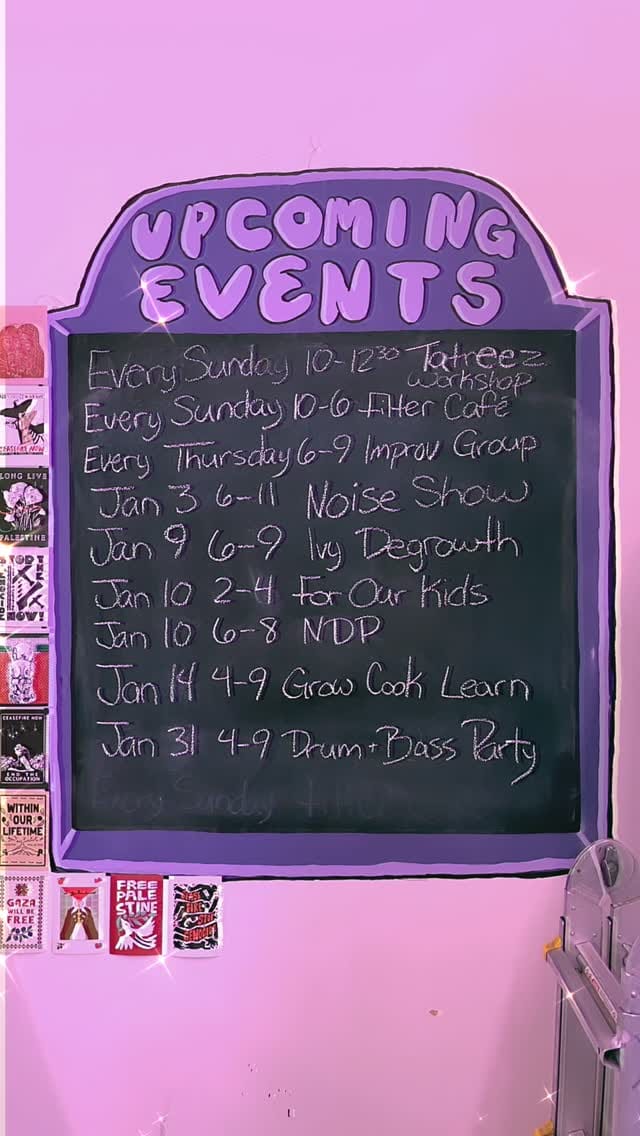 UPCOMING
EVENTS
Every Sunday 10-12³⁰ Tatreez
Workshop
Every Sunday 10-6 Filter Café
Every Thursday 6-9 Improv Group
Jan 3 6-11 Noise Show
Jan 9 6-9 Ivy Degrowth
Jan 10 2-4 For Our Kids
Jan 10 6-8 NDP
Jan 14 4-9 Grow Cook Learn
Jan 31 4-9 Drum + Bass Party
Every Sunday
CEASEFIRE NOW
LONG LIVE
PALESTINE
NOW!
CEASEFIRE NOW
END THE
OCCUPATION
WITHIN
OUR
LIFETIME
GAZA
WILL BE
FREE
FREE
PALE
STINE